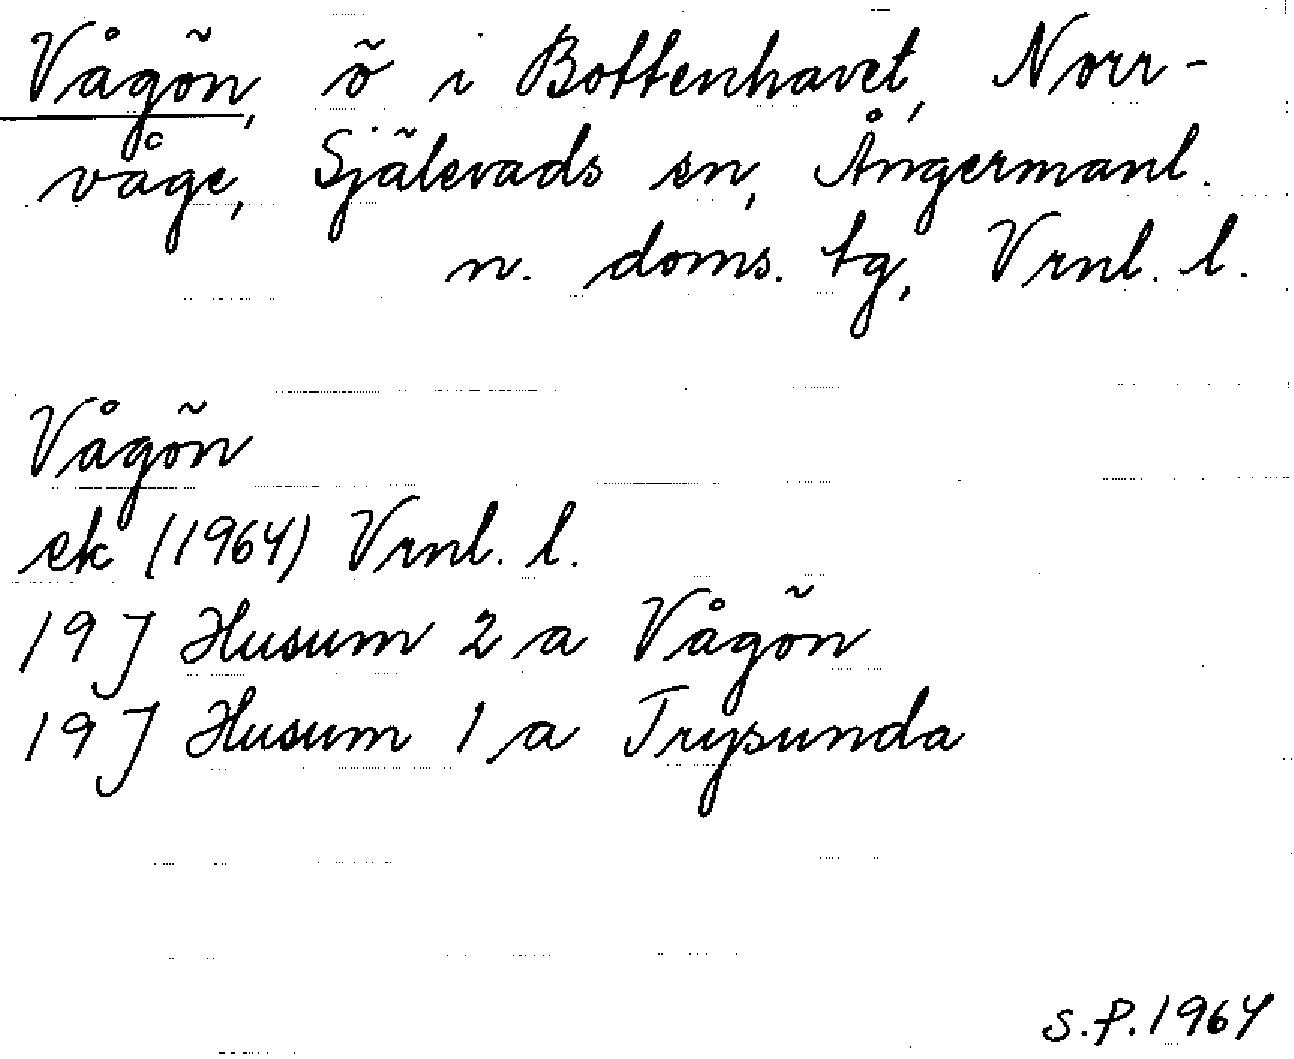 Vågön, ö i Bottenhavet, Norr-
våge, Själevads sn, Ångermanl.
n. doms. tg, Vrnl. l.
Vågön
ek (1964) Vrnl. l.
19 J Husum 2 a Vågön
19 J Husum 1 a Trysunda
S.P. 1964